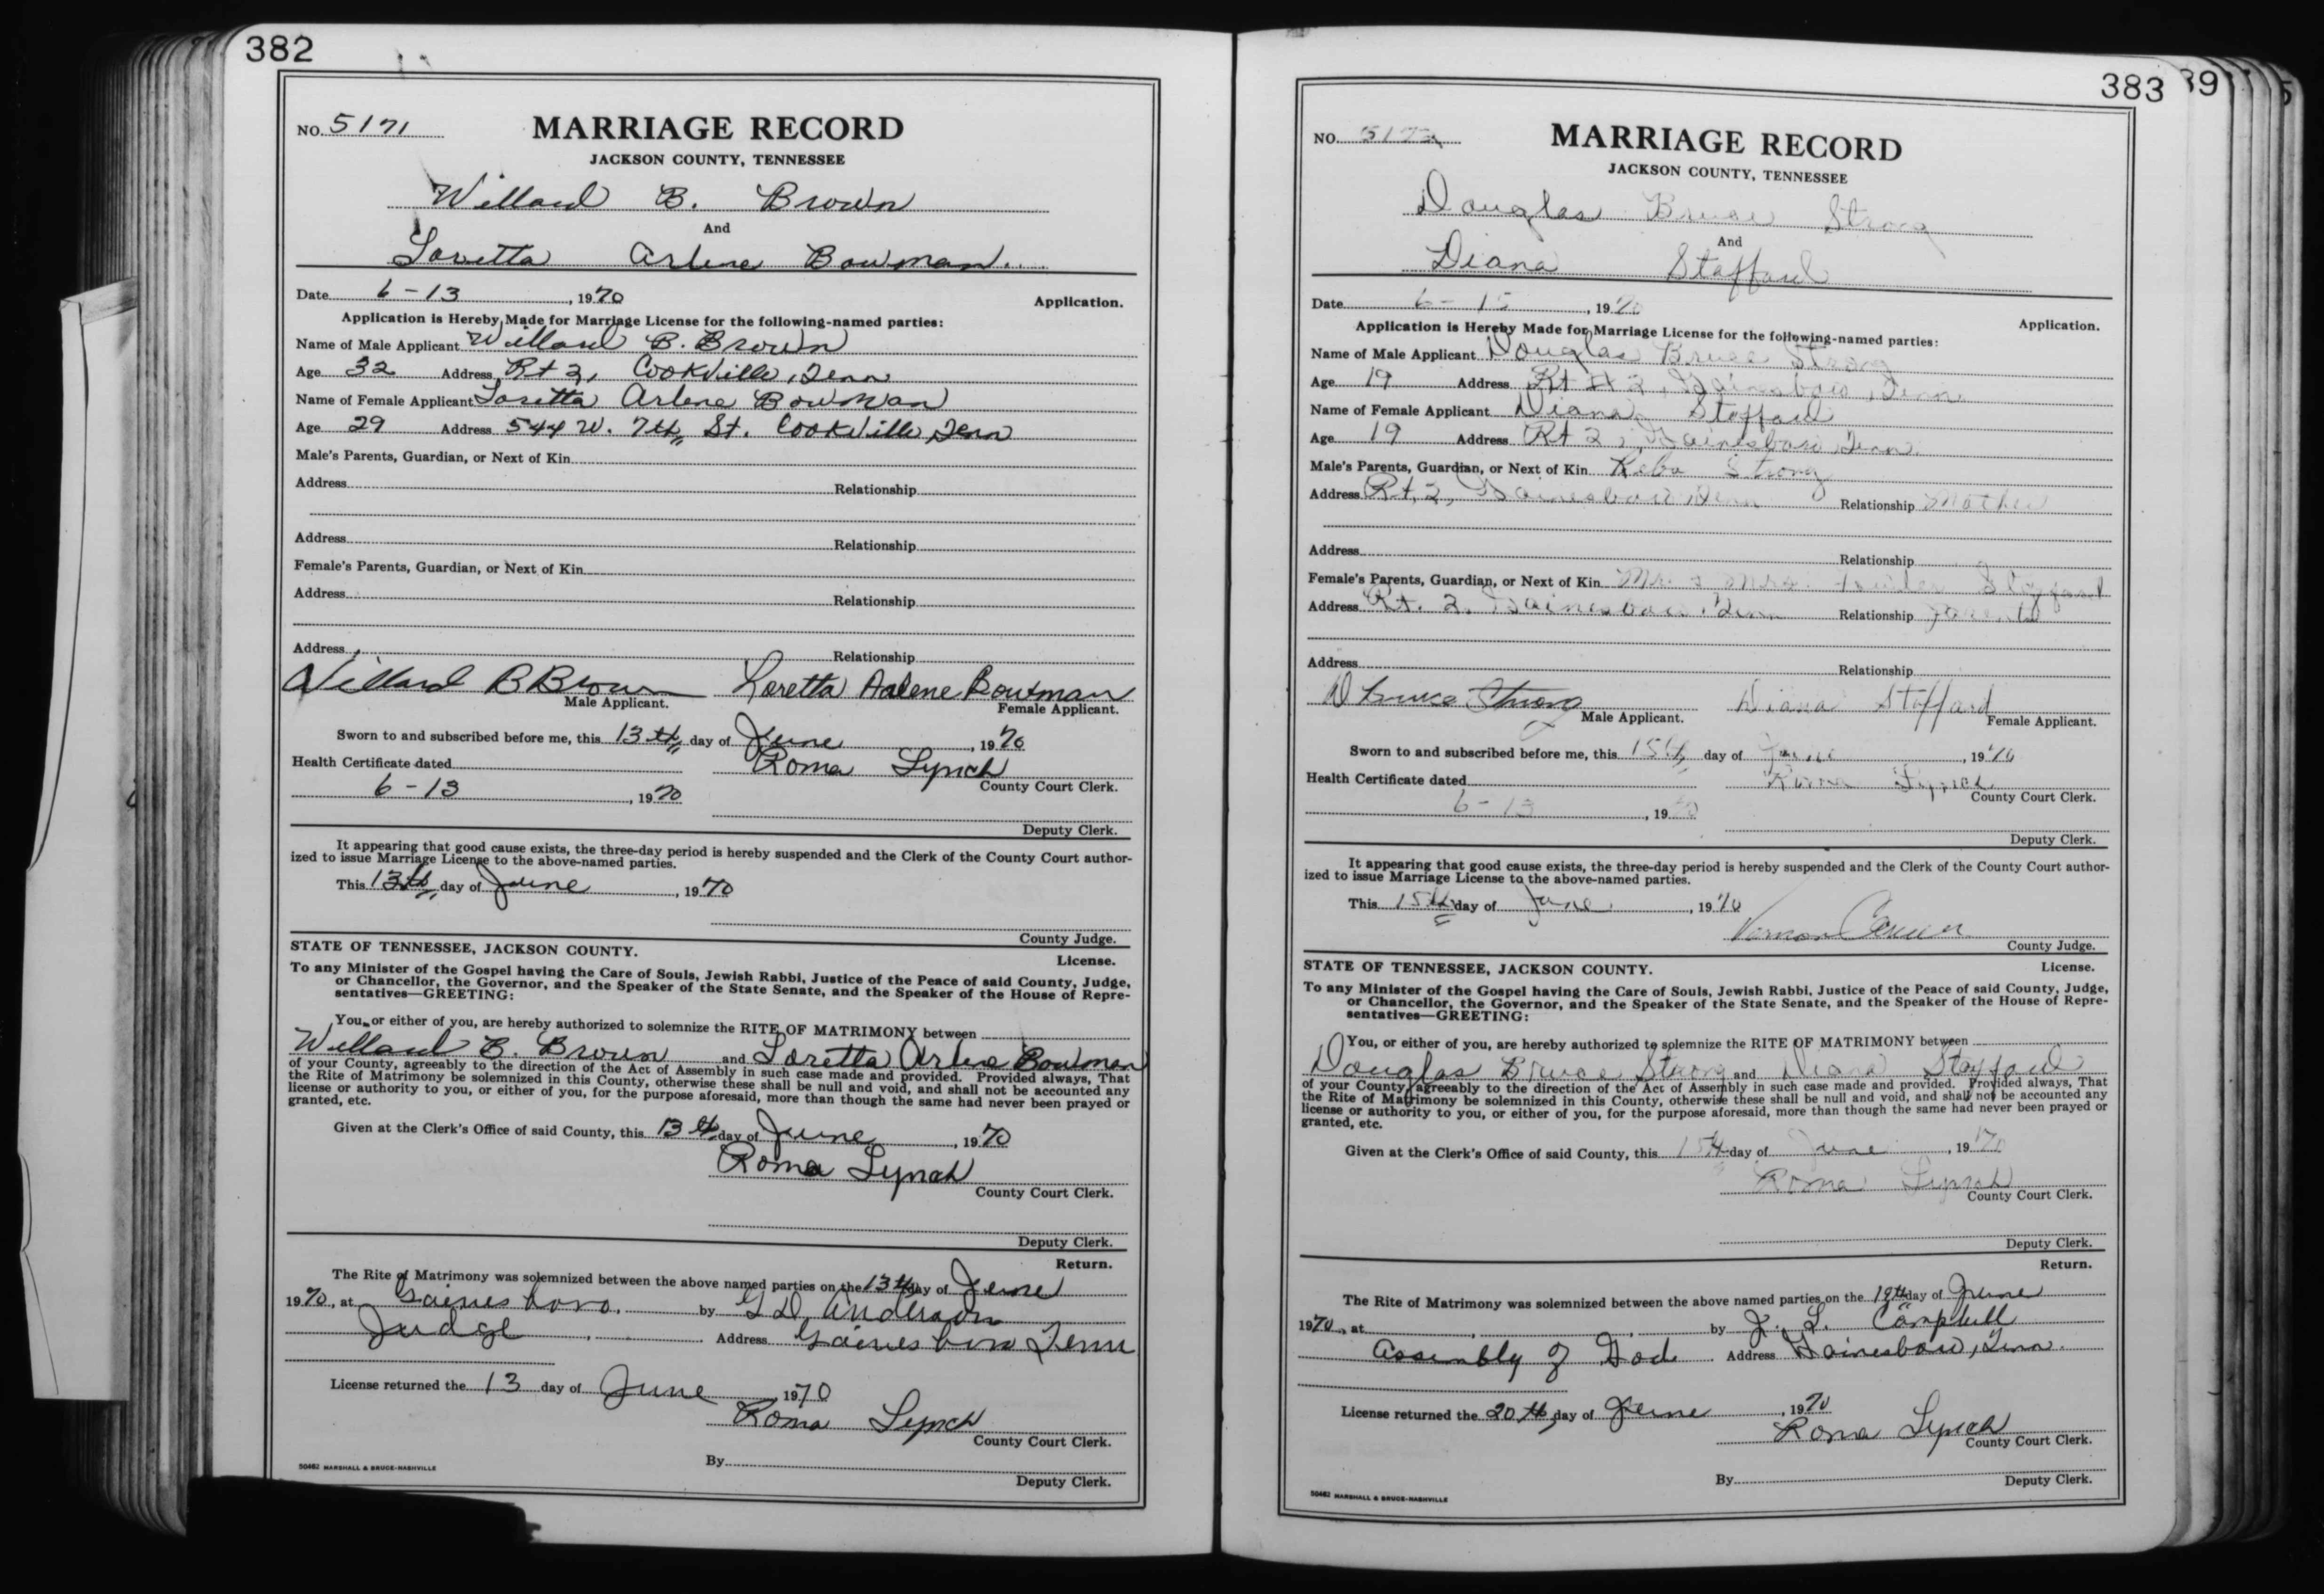 382
NO. 5171
MARRIAGE RECORD
JACKSON COUNTY, TENNESSEE
Willard B. Brown
And
Loretta Arlene Bowman
Date 6-13, 1970
Application.
Application is Hereby Made for Marriage License for the following-named parties:
Name of Male Applicant Willard B. Brown
Age 32 Address Rt 2, Cookville, Tenn
Name of Female Applicant Loretta Arlene Bowman
Age 29 Address 544 W. 7th St. Cookville, Tenn
Male's Parents, Guardian, or Next of Kin
Address Relationship
Address Relationship
Female's Parents, Guardian, or Next of Kin
Address Relationship
Address Relationship
Willard B Brown Loretta Arlene Bowman
Male Applicant. Female Applicant.
Sworn to and subscribed before me, this 13th day of June, 1970
Health Certificate dated Roma Lynch
County Court Clerk.
6-13, 1970
Deputy Clerk.
It appearing that good cause exists, the three-day period is hereby suspended and the Clerk of the County Court author-
ized to issue Marriage License to the above-named parties.
This 13th day of June, 1970
County Judge.
STATE OF TENNESSEE, JACKSON COUNTY.
License.
To any Minister of the Gospel having the Care of Souls, Jewish Rabbi, Justice of the Peace of said County, Judge,
or Chancellor, the Governor, and the Speaker of the State Senate, and the Speaker of the House of Repre-
sentatives—GREETING:
You, or either of you, are hereby authorized to solemnize the RITE OF MATRIMONY between
Willard B. Brown and Loretta Arlene Bowman
of your County, agreeably to the direction of the Act of Assembly in such case made and provided. Provided always, That
the Rite of Matrimony be solemnized in this County, otherwise these shall be null and void, and shall not be accounted any
license or authority to you, or either of you, for the purpose aforesaid, more than though the same had never been prayed or
granted, etc.
Given at the Clerk's Office of said County, this 13th day of June, 1970
Roma Lynch
County Court Clerk.
Deputy Clerk.
Return.
The Rite of Matrimony was solemnized between the above named parties on the 13th day of June
1970, at Gainesboro, by G D Anderson
Judge Address Gainesboro Tenn
License returned the 13 day of June, 1970
Roma Lynch
County Court Clerk.
By
Deputy Clerk.
50462 MARSHALL & BRUCE-NASHVILLE
383
39
5
NO. 5172
MARRIAGE RECORD
JACKSON COUNTY, TENNESSEE
Douglas Bruce Strong
And
Diana Stafford
Date 6-15, 1970
Application.
Application is Hereby Made for Marriage License for the following-named parties:
Name of Male Applicant Douglas Bruce Strong
Age 19 Address Rt # 2, Gainesboro, Tenn
Name of Female Applicant Diana Stafford
Age 19 Address Rt 2, Gainesboro, Tenn.
Male's Parents, Guardian, or Next of Kin Reba Strong
Address Rt. 2, Gainesboro Tenn Relationship Mother
Address Relationship
Female's Parents, Guardian, or Next of Kin Mr. & Mrs. Stafford
Address Rt. 2, Gainesboro, Tenn Relationship Parents
Address Relationship
D Bruce Strong Diana Stafford
Male Applicant. Female Applicant.
Sworn to and subscribed before me, this 15th day of June, 1970
Health Certificate dated Roma Lynch
County Court Clerk.
6-13, 1970
Deputy Clerk.
It appearing that good cause exists, the three-day period is hereby suspended and the Clerk of the County Court author-
ized to issue Marriage License to the above-named parties.
This 15th day of June, 1970
Vernon
County Judge.
STATE OF TENNESSEE, JACKSON COUNTY.
License.
To any Minister of the Gospel having the Care of Souls, Jewish Rabbi, Justice of the Peace of said County, Judge,
or Chancellor, the Governor, and the Speaker of the State Senate, and the Speaker of the House of Repre-
sentatives—GREETING:
You, or either of you, are hereby authorized to solemnize the RITE OF MATRIMONY between
Douglas Bruce Strong and Diana Stafford
of your County, agreeably to the direction of the Act of Assembly in such case made and provided. Provided always, That
the Rite of Matrimony be solemnized in this County, otherwise these shall be null and void, and shall not be accounted any
license or authority to you, or either of you, for the purpose aforesaid, more than though the same had never been prayed or
granted, etc.
Given at the Clerk's Office of said County, this 15th day of June, 1970
Roma Lynch
County Court Clerk.
Deputy Clerk.
Return.
The Rite of Matrimony was solemnized between the above named parties on the 19th day of June
1970, at by J. L. Campbell
Assembly of God Address Gainesboro, Tenn.
License returned the 20th day of June, 1970
Roma Lynch
County Court Clerk.
By
Deputy Clerk.
50462 MARSHALL & BRUCE-NASHVILLE